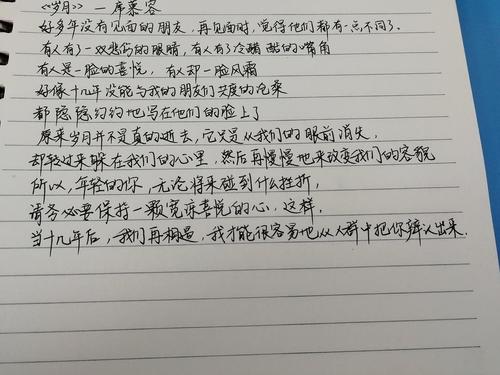 《岁月》 — 席慕容
好多年没有见面的朋友，再见面时，觉得他们都有一点不同了.
有人有了一双悲伤的眼睛，有人有了冷酷的嘴角
有人是一脸的喜悦，有人却一脸风霜
好像十几年没能与我的朋友们共度的沧桑
都隐隐约约地写在他们的脸上了
原来岁月并不是真的逝去，它只是从我们的眼前消失，
却转过来躲在我们的心里，然后再慢慢地来改变我们的容貌
所以，年轻的你，无论将来碰到什么挫折，
请务必要保持一颗宽谅喜悦的心，这样，
当十几年后，我们再相遇，我才能很容易地从人群中把你辨认出来.